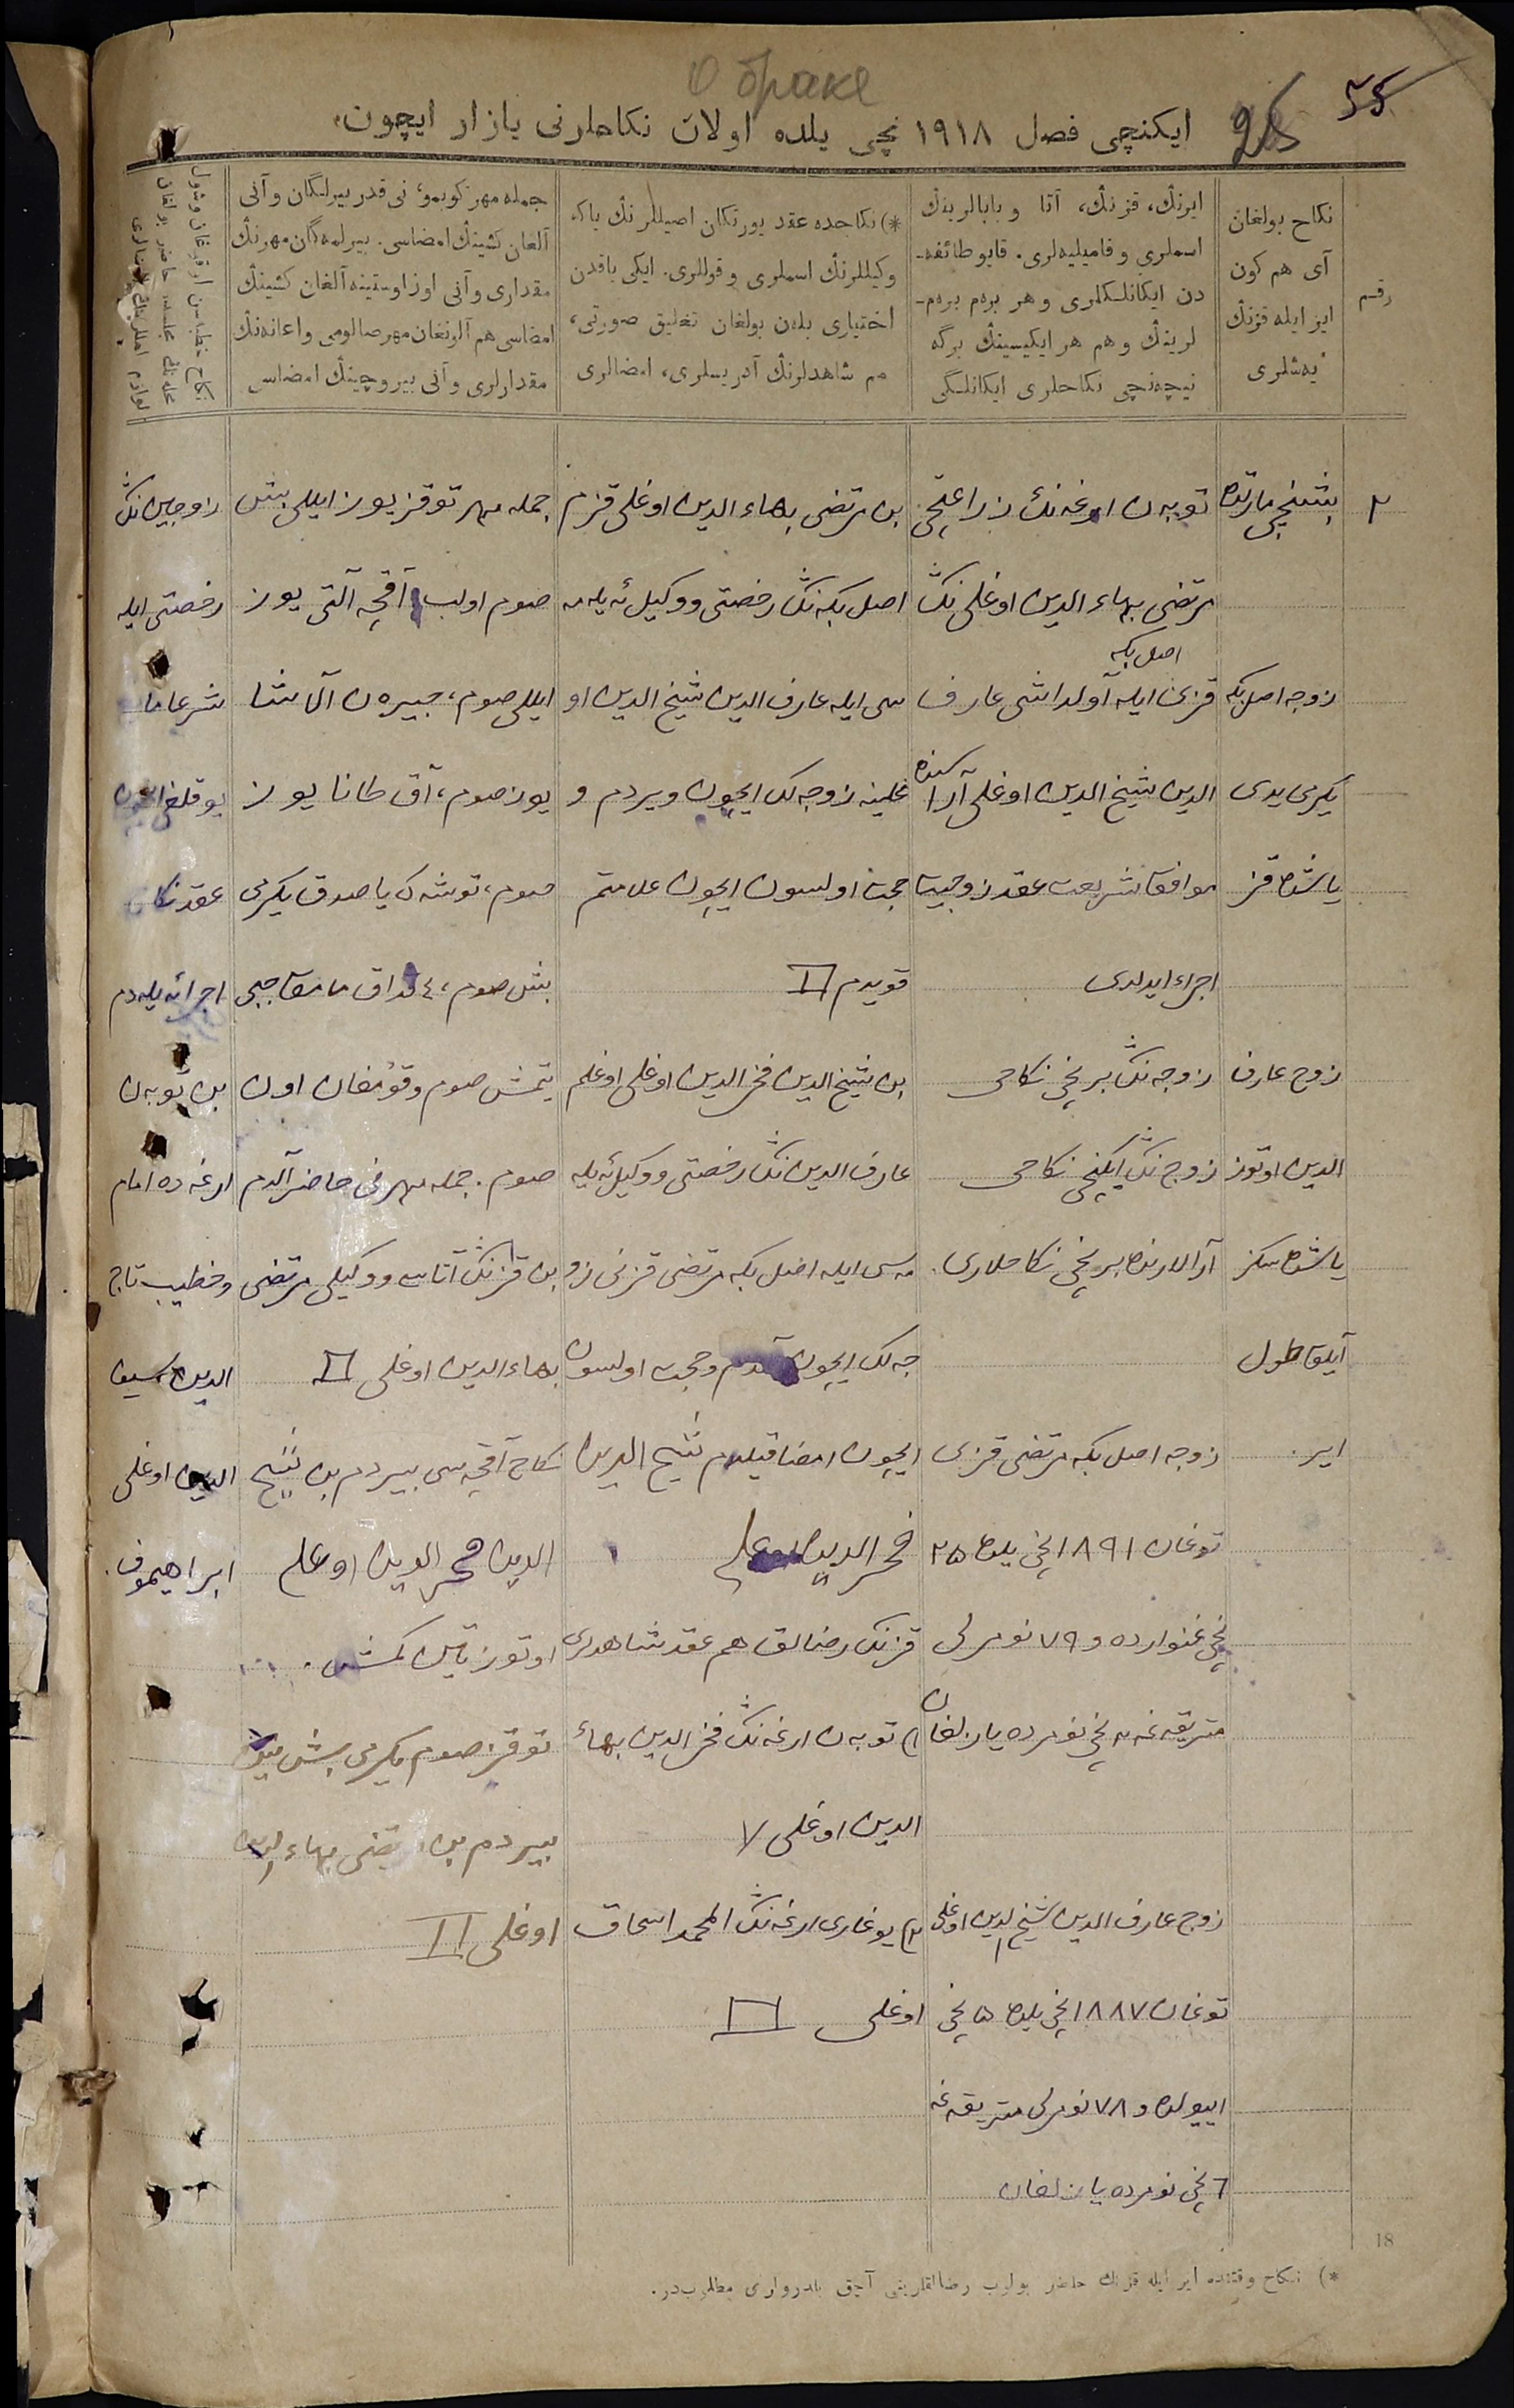 О браке
55
28
ایكنچی فصل ١٩١٨ نچی یلده اولان نكاحلارنی یازار ایچون
رقم
نكاح بولغان
آی هم كون
ایر ایله قزنڭ
یەشلری
ایرنڭ، قزنڭ، آتا و بابالرینڭ
اسملری و فامیلیەلری. قایو طائفە-
دن ایكانلكلری و هر برەم برەم-
لرینڭ و هم هر ایكیسینڭ برگه
نیچەنچی نكاحلری ایكانلگی
*) نكاحده عقد یورتكان اصیللرنڭ یاكه
وكیللرنڭ اسملری و قوللری. ایكی یاقدن
اختیاری بلەن بولغان تعلیق صورتی،
هم شاهدلرنڭ آدریسلری، امضالری
جمله مهر كوبمو، نی قدر بیرلگان و آنی
آلغان كشینڭ امضاسی. بیرلمەگان مهرنڭ
مقداری و آنی اوز اوستینه آلغان كشینڭ
امضاسی هم آلونغان مهر صالومی و اعانەنڭ
مقدارلری و آنی بیروچینڭ امضاسی
٢
بشنچی مارتده
زوجه اصل بكه
یكرمی یدی
یاشده قز
زوج عارف
الدین اوتوز
یاشده سكز
آیلق طول
ایر.
توبەن اورغەنڭ زراعتچی
مرتضی بهاء الدین اوغلی نڭ
اصل بكه
قزی ایله آولداشی عارف
الدین شیخ الدین اوغلی آراسنده
موافق شریعت عقد زوجیت
اجراء ایدلدی
زوجه نڭ برنچی نكاحی
زوج نڭ ایكنچی نكاحی
آرالارنده برنچی نكاحلاری.
زوجه اصل بكه مرتضی قزی
توغان ١٨٩١ نچی یلده ٢٥
نچی غنوارده و ٧٩ نومرلی
متریقه غه نچی نومرده یازلغان
زوج عارف الدین شیخ الدین اوغلی
توغان ١٨٨٧ نچی یلده ٥ نچی
اییولده و ٧٨ نومرلی متریقه غه
٦ نچی نومرده یازلغان
بن مرتضی بهاء الدین اوغلی قزم
اصل بكه نڭ رخصتی و وكیل
سی ایله عارف الدین شیخ الدین او
غلینه زوجه لك ایچون ویردم و
حجت اولسون ایچون علامتم
قویدم
بن شیخ الدین فخر الدین اوغلی اوغلم
عارف الدین نڭ رخصتی و وكیل
سی ایله اصل بكه مرتضی قزنی زو
جه لك ایچون آلدم و حجت اولسون
ایچون امضا قیلدم شیخ الدین
فخر الدین اوغلی
قزنڭ رضالق هم عقد شاهدلری
١) توبەن ارغەنڭ فخر الدین بهاء
الدین اوغلی ٧
٢) یوغاری ارغەنڭ محمد اسحاق
اوغلی
جمله مهر توقز یوز ایللی بش
صوم اولب آقچه آلتی یوز
ایللی صوم، جبیرەن آلاشا
یوز صوم، آق طانا یوز
صوم، توشەك یاصدق یكرمی
بش صوم، ٤ قداق مامق
یتمش صوم و قومغان اون
صوم. جمله مهرنی حاضر آلدم
بن قزنڭ آتاسی و وكیلی مرتضی
بهاء الدین اوغلی
نكاح آقچه سی بیردم بن شیخ
الدین فخر الدین اوغلی
اوتوز تین كمش.
توقز صوم یكرمی بش تین
بیردم بن مرتضی بهاء الدین
اوغلی
زوجین نڭ
رخصتی ایله
شرعا مانع
یوقلغی ایچون
عقد نكاح
اجرا ئەیلەدم
بن توبەن
ارغه ده امام
و خطیب تاج
الدین سیف
الدین اوغلی
ابراهیموف.
18
*) نكاح وقتنده ایر ایله قزنڭ حاضر بولوب رضالقلرینی آچق بلدرولری مطلوبدر.